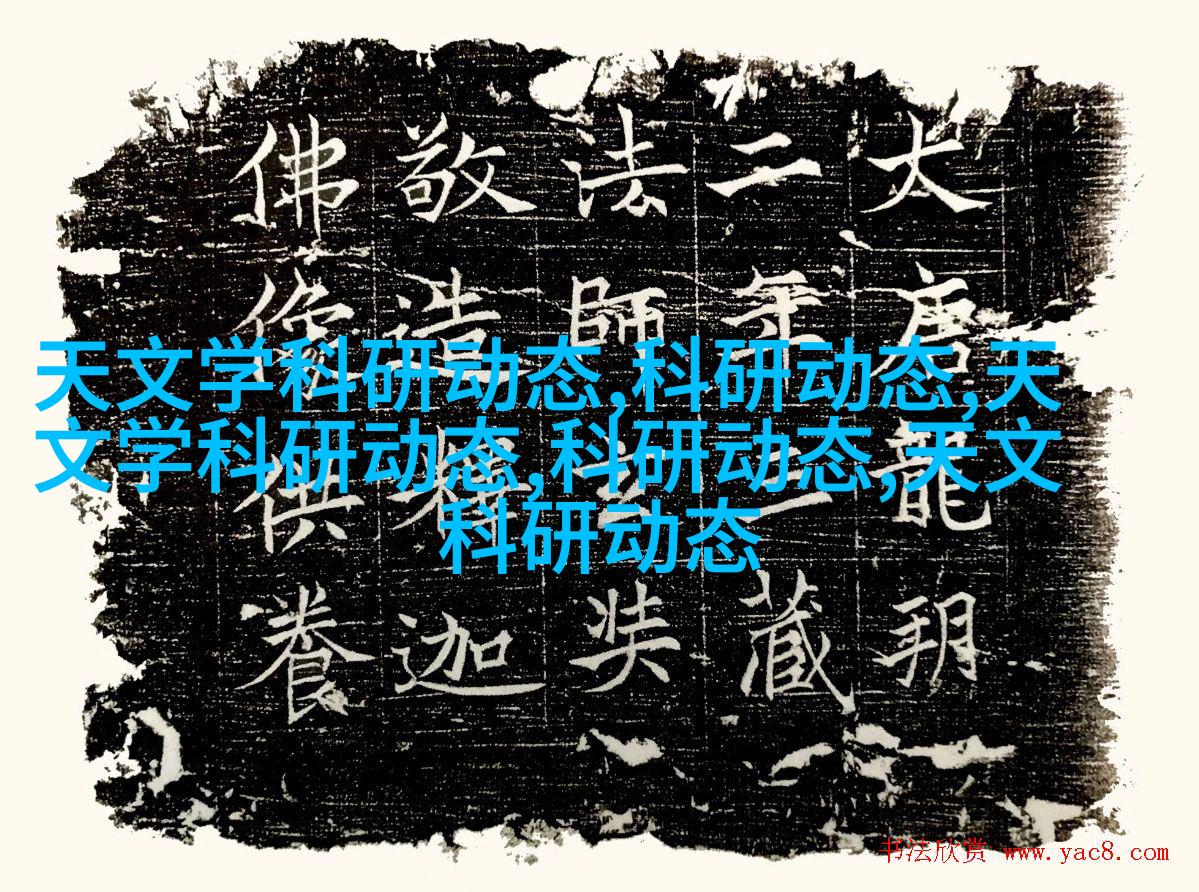 大唐龍朔
二年三藏
法師玄奘
敬造釋迦
佛像供養
天文学科研动态,科研动态,天
文学科研动态,科研动态,天文
科研动态
书法欣赏 www.yac8.com